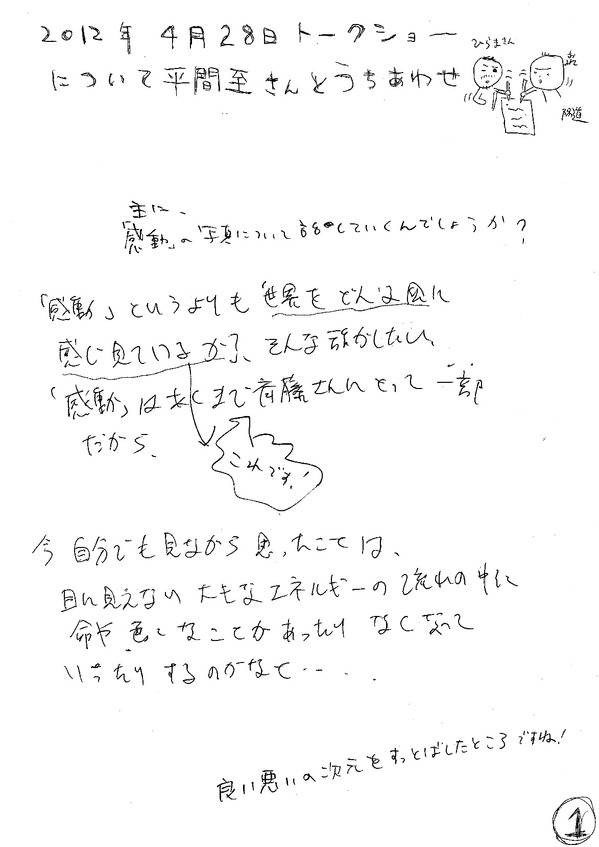 2012年 4月28日トークショー
について平間至さんとうちあわせ
ひらまさん
陽道
主に、
「感動」の写真について話していくんでしょうか?
「感動」というよりも「世界をどんな風に
感じ見ているか」、そんな話がしたい。
「感動」はあくまで斉藤さんにとって一部
だから、
これです!
今自分でも見ながら思ったことは、
目に見えない大きなエネルギーの流れの中に
命や色んなことがあったりなくなって
いったりするのかなと…..
良い悪いの次元をすっとばしたところですね!
1